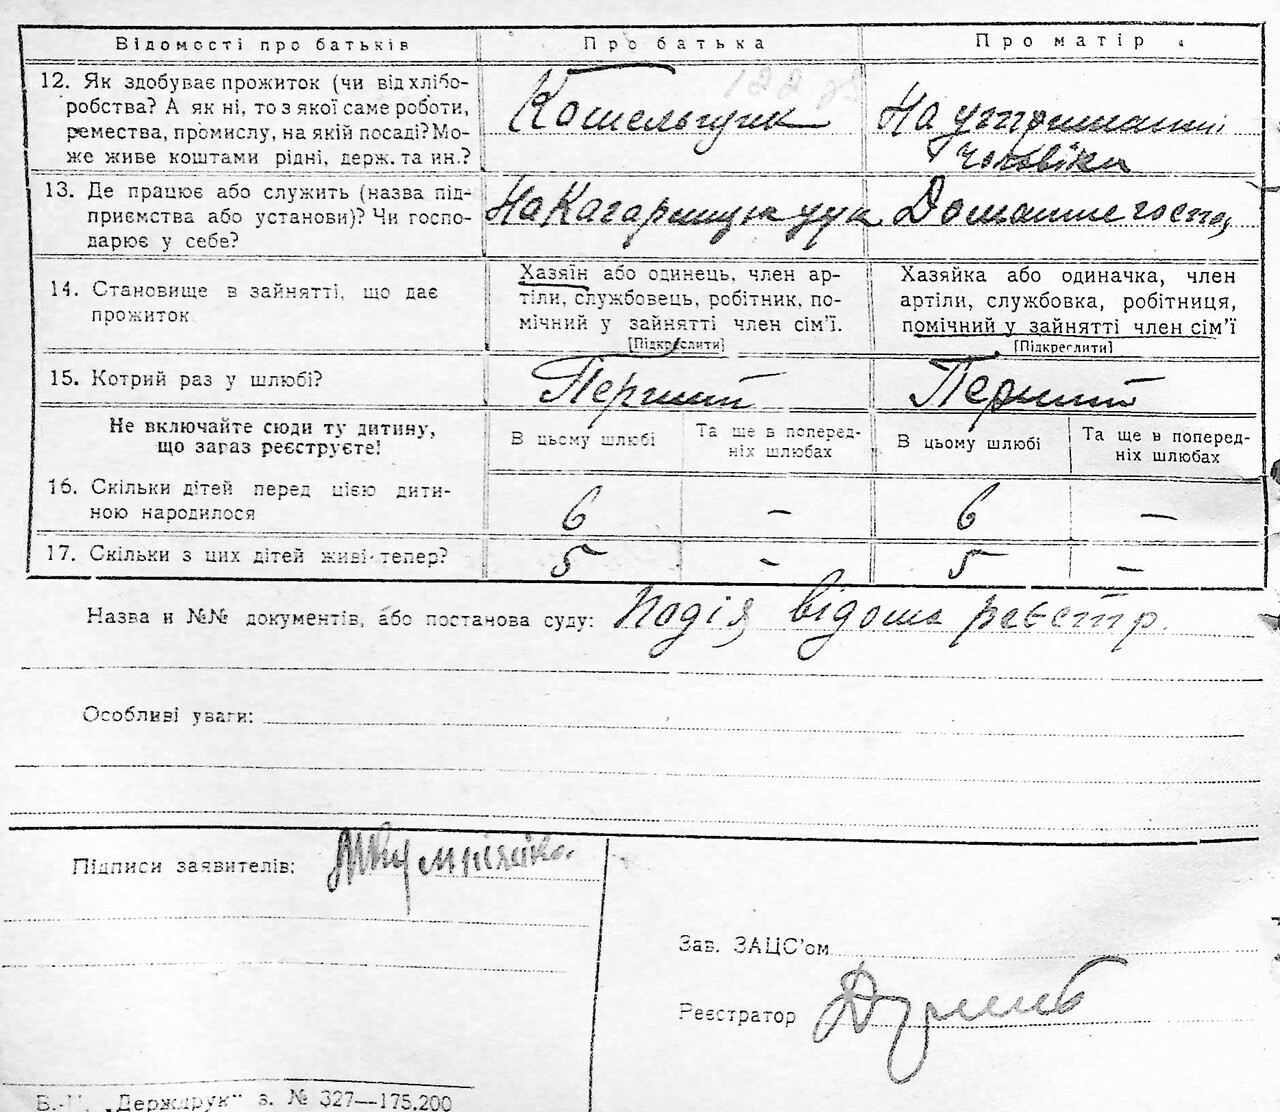 Відомості про батьків
Про батька
Про матір
12. Як здобуває прожиток (чи від хлібо-
робства? А як ні, то з якої саме роботи,
ремества, промислу, на якій посаді? Мо-
же живе коштами рідні, держ. та ин.?
122
На утриманні
чоловіка
13. Де працює або служить (назва під-
приємства або установи)? Чи госпо-
дарює у себе?
Домашнє госп.
14. Становище в зайнятті, що дає
прожиток
Хазяїн або одинець, член ар-
тіли, службовець, робітник, по-
мічний у зайнятті член сім'ї.
[Підкреслити]
Хазяйка або одиначка, член
артіли, службовка, робітниця,
помічний у зайнятті член сім'ї
[Підкреслити]
15. Котрий раз у шлюбі?
Перший
Перший
Не включайте сюди ту дитину,
що зараз реєструєте!
В цьому шлюбі
Та ще в поперед-
ніх шлюбах
В цьому шлюбі
Та ще в поперед-
ніх шлюбах
16. Скільки дітей перед цією дити-
ною народилося
6
—
6
—
17. Скільки з цих дітей живі тепер?
5
—
5
—
Назва и №№ документів, або постанова суду: Подія відома реєстр.
Особливі уваги:
Підписи заявителів:
Зав. ЗАЦС'ом
Реєстратор
"Держдрук" з. № 327—175.200